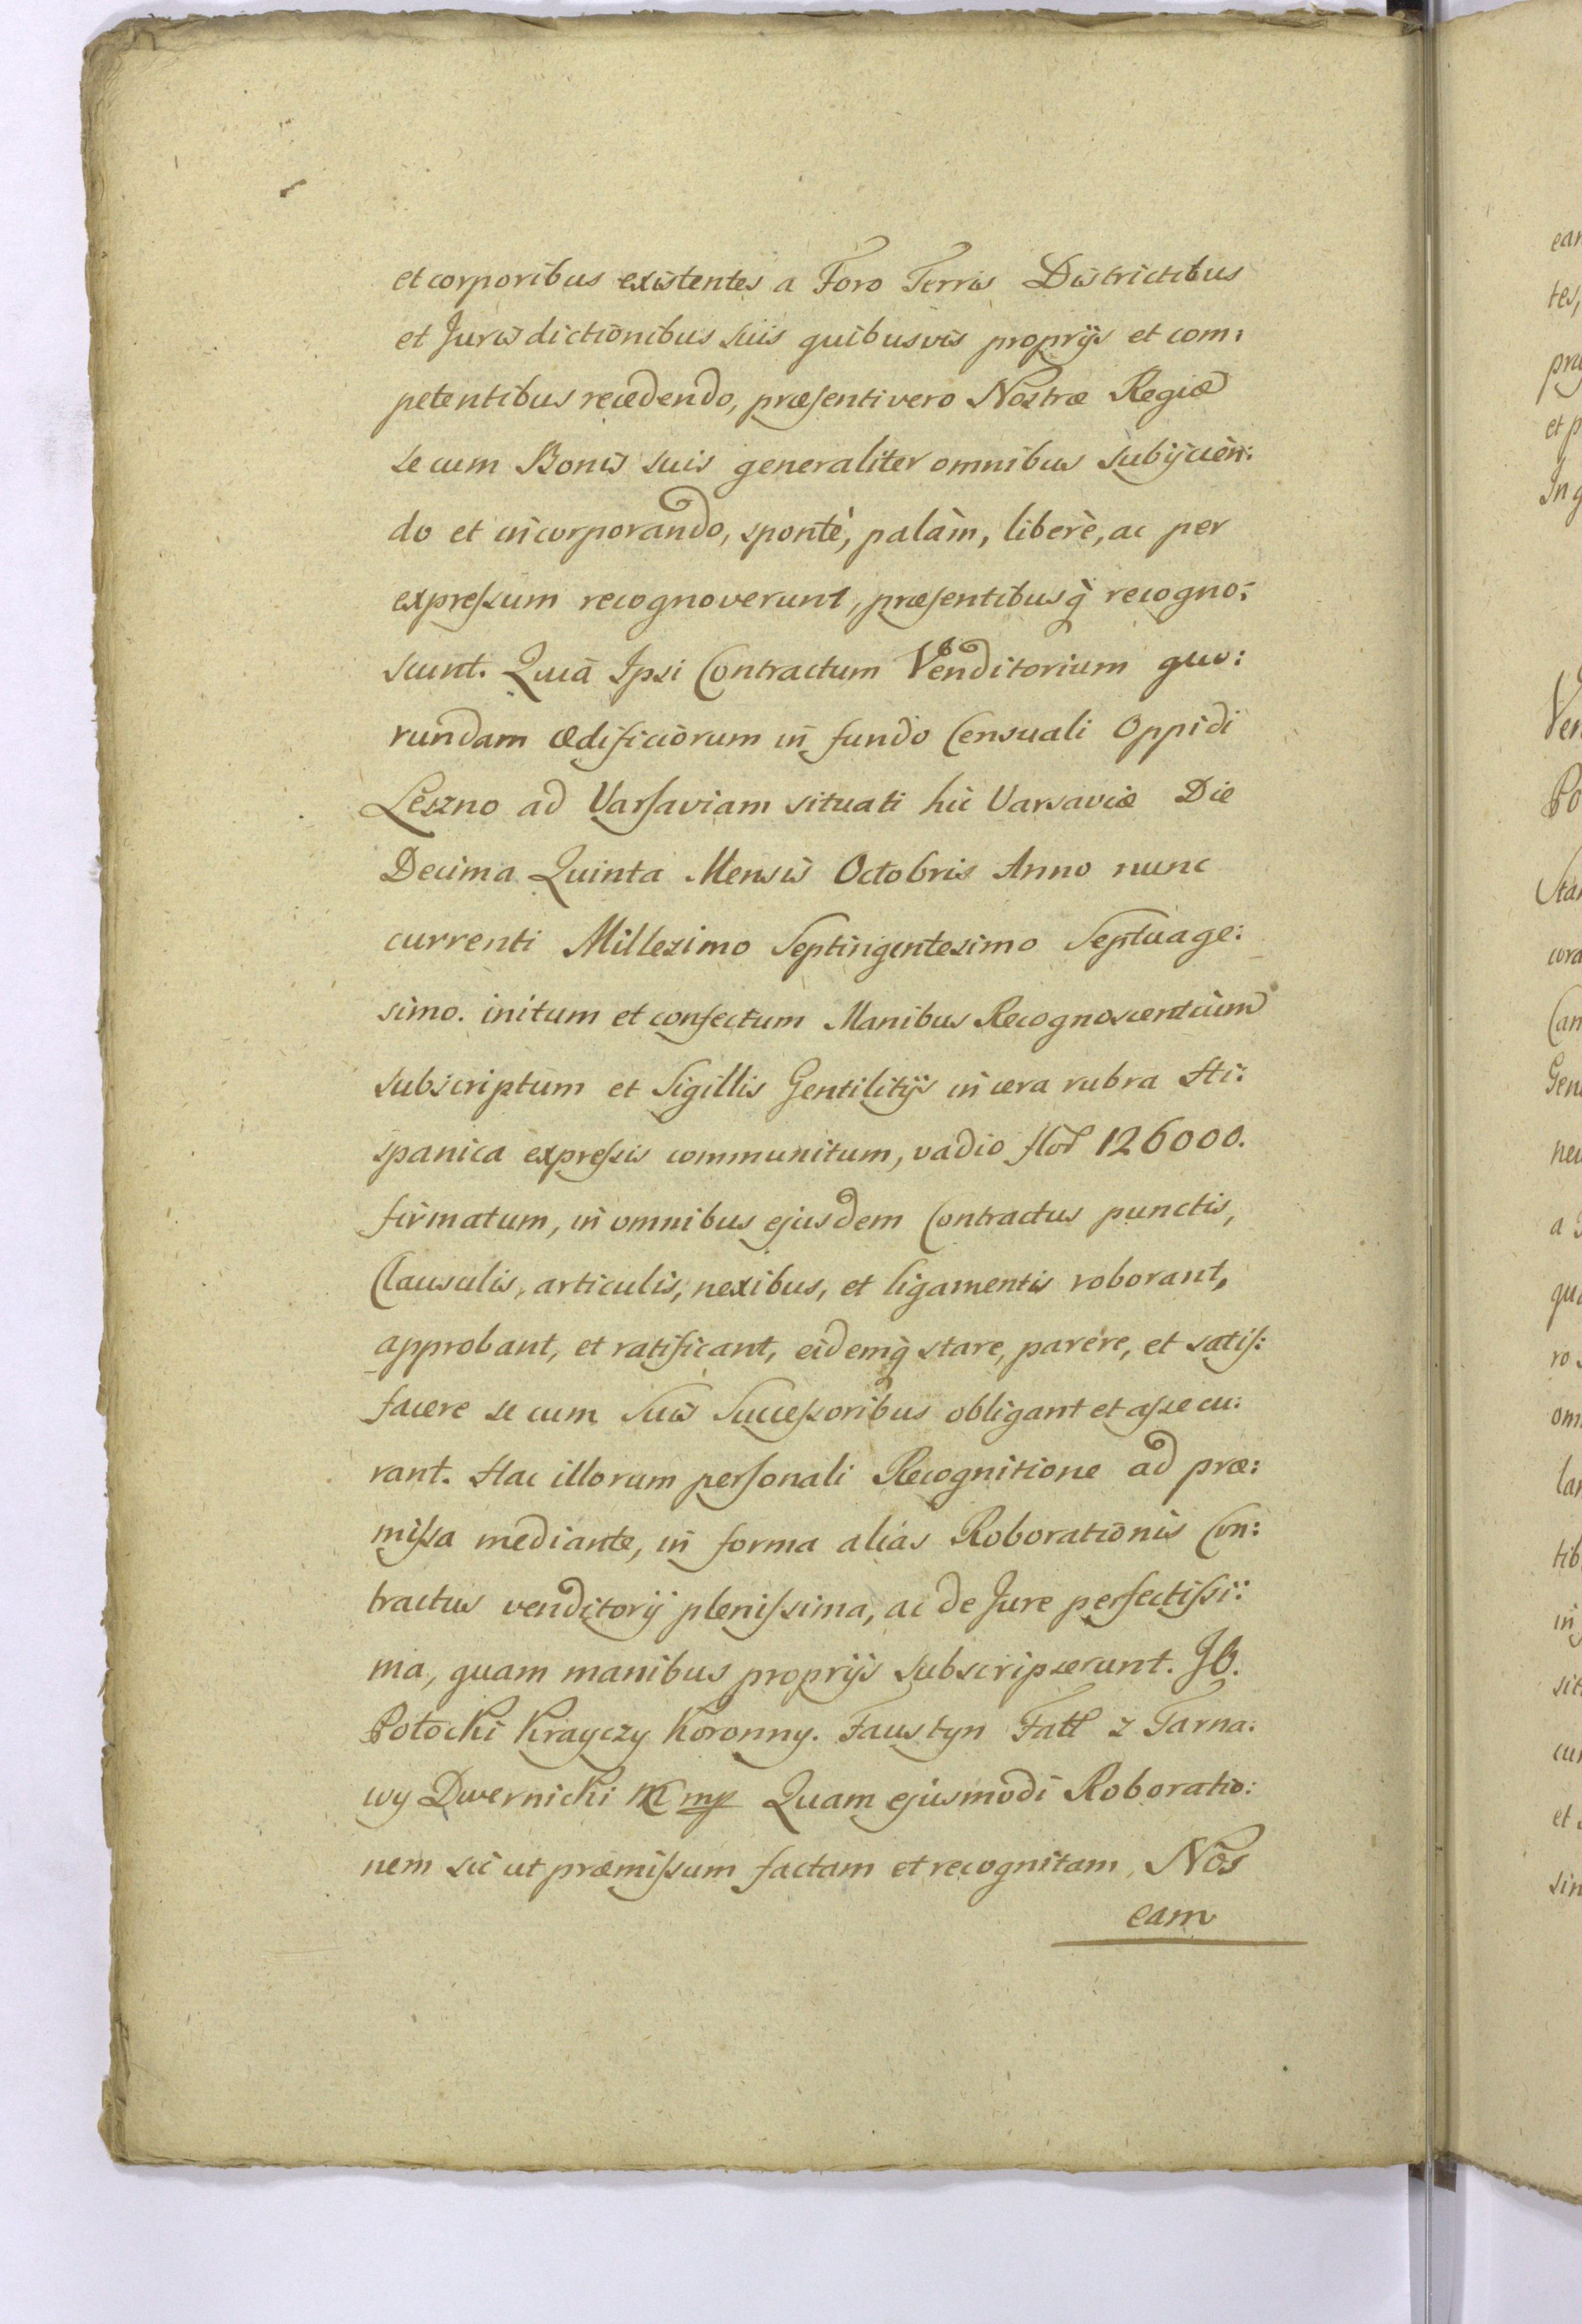 et corporibus existentes a Foro Terris Districtibus
et Jurisdictionibus suis quibusvis proprijs et com:
petentibus recedendo, præsenti vero Nostræ Regiæ
se cum Bonis suis generaliter omnibus subijcien:
do et incorporando, spontè, palàm, liberè, ac per
expressum recognoverunt, præsentibusq̀ recogno:
scunt. Quià Ipsi Contractum Venditorium quo:
rundam ædificiorum in fundo Censuali Oppidi
Leszno ad Varsaviam situati hic Varsaviæ Die
Decima Quinta Mensis Octobris Anno nunc
currenti Millesimo Septingentesimo Septuage:
simo. initum et confectum Manibus Recognoscentium
subscriptum et Sigillis Gentilitijs in cera rubra Hi:
spanica expressis communitum, vadio flor 126000.
firmatum, in omnibus ejusdem Contractus punctis,
Clausulis, articulis, nexibus, et ligamentis roborant,
approbant, et ratificant, eidemq̀ stare, parere, et satis:
facere se cum Suis Successoribus obligant et assecu:
rant. Hac illorum personali Recognitione ad præ:
missa mediante, in forma alias Roborationis Con:
tractus venditorij plenissima, ac de Jure perfectissi:
ma, quam manibus proprijs subscripserunt.
Potocki Krayczy Koronny. Faustyn Fatt z Tarna:
wy Dwernicki mp Quam ejusmodi Roboratio:
nem sic ut præmissum factam et recognitam, Nos
eam